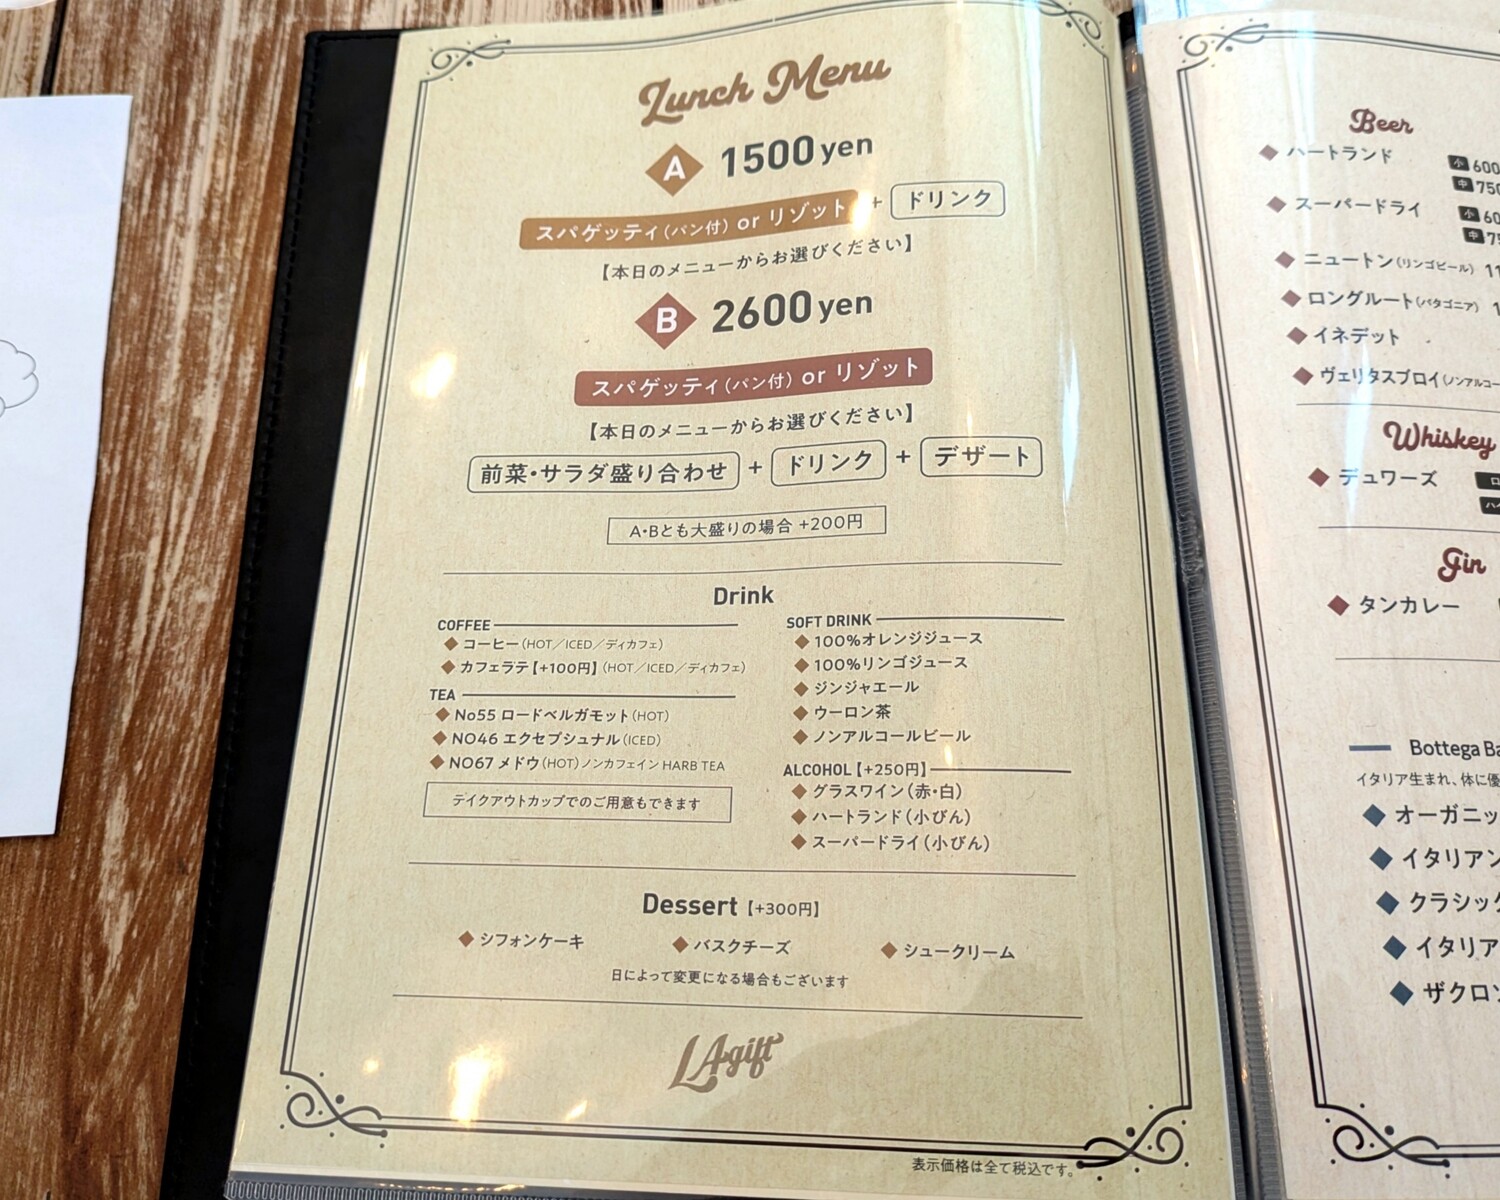 Lunch Menu
A 1500yen
スパゲッティ(パン付) or リゾット + ドリンク
【本日のメニューからお選びください】
B 2600yen
スパゲッティ(パン付) or リゾット
【本日のメニューからお選びください】
前菜・サラダ盛り合わせ + ドリンク + デザート
A・Bとも大盛りの場合 +200円
Drink
COFFEE
コーヒー(HOT/ICED/ディカフェ)
カフェラテ【+100円】(HOT/ICED/ディカフェ)
TEA
No55 ロードベルガモット(HOT)
NO46 エクセプショナル(ICED)
NO67 メドウ(HOT)ノンカフェイン HARB TEA
テイクアウトカップでのご用意もできます
SOFT DRINK
100%オレンジジュース
100%リンゴジュース
ジンジャエール
ウーロン茶
ノンアルコールビール
ALCOHOL【+250円】
グラスワイン(赤・白)
ハートランド(小びん)
スーパードライ(小びん)
Dessert【+300円】
シフォンケーキ
バスクチーズ
シュークリーム
日によって変更になる場合もございます
LAgift
表示価格は全て税込です。
Beer
ハートランド 小 600
中 750
スーパードライ 小 60
中 75
ニュートン(リンゴビール) 11
ロングルート(パタゴニア) 1
イネデット
ヴェリタスブロイ(ノンアルコー
Whiskey
デュワーズ
Gin
タンカレー
Bottega Ba
イタリア生まれ、体に優
オーガニッ
イタリアン
クラシック
イタリア
ザクロン